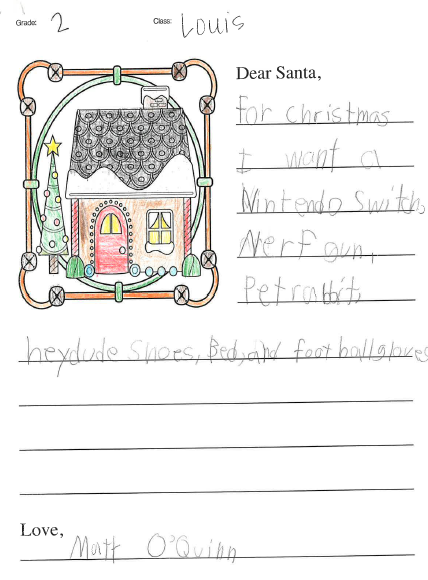 Grade: 2 Class: Louis
Dear Santa,
for christmas
I want a
Nintendo Switch,
Nerf gun,
Pet rabbit,
heydude shoes, Bed, and foot ball gloves
Love,
Matt O'Quinn